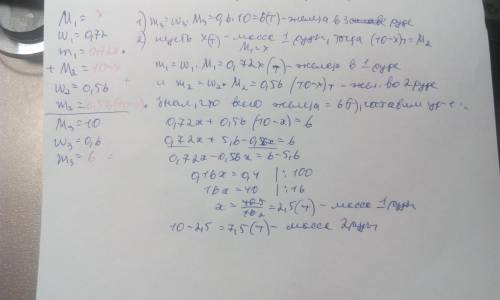 M₁ = x
w₁ = 0,72
m₁ = 0,72x
+ M₂ = 10-x
w₂ = 0,56
m₂ = 0,56(10-x)
M₃ = 10
w₃ = 0,6
m₃ = 6
1) m₃ = w₃ · M₃ = 0,6 · 10 = 6(т) - железа в 3 руде
2) пусть x(т) - масса 1 руды, тогда (10-x)т = M₂
M₁ = x
m₁ = w₁ · M₁ = 0,72x (т) - железо в 1 руде
и m₂ = w₂ · M₂ = 0,56 (10-x)т - жел. во 2 руде
. Зная, что всего железа = 6(т), составим ур-е:
0,72x + 0,56 (10-x) = 6
0,72x + 5,6 - 0,56x = 6
0,72x - 0,56x = 6 - 5,6
0,16x = 0,4 | : 100
16x = 40 | : 16
x = = 2,5(т) - масса 1 руды
10 - 2,5 = 7,5(т) - масса 2 руды